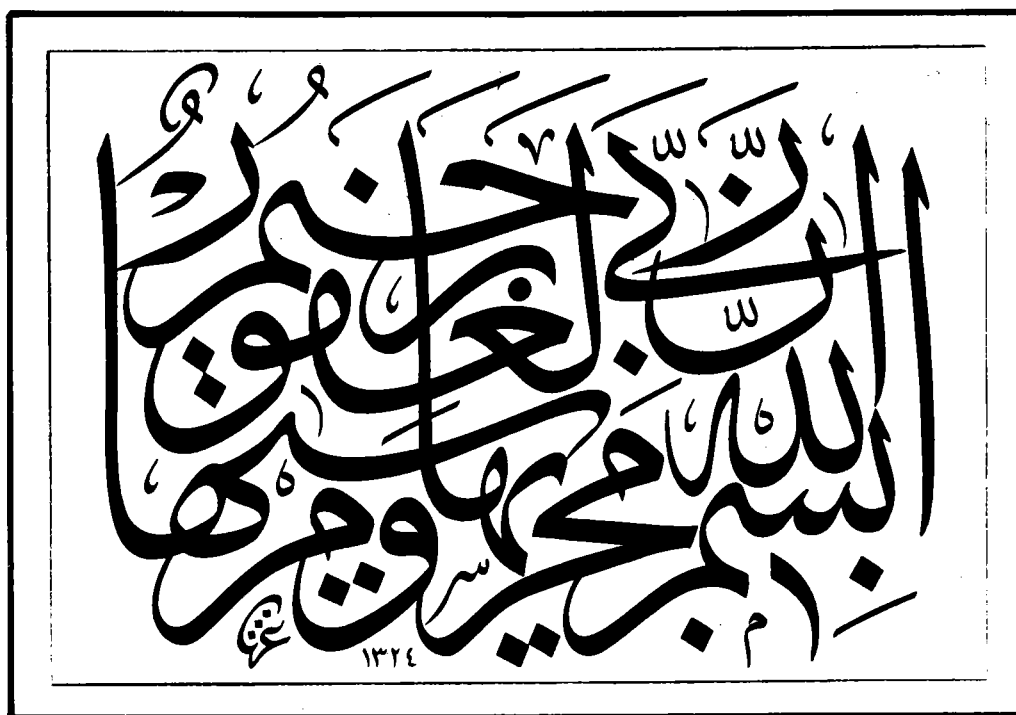 بسم الله مجريها ومرسيها
إن ربي لغفور رحيم
١٣٢٤